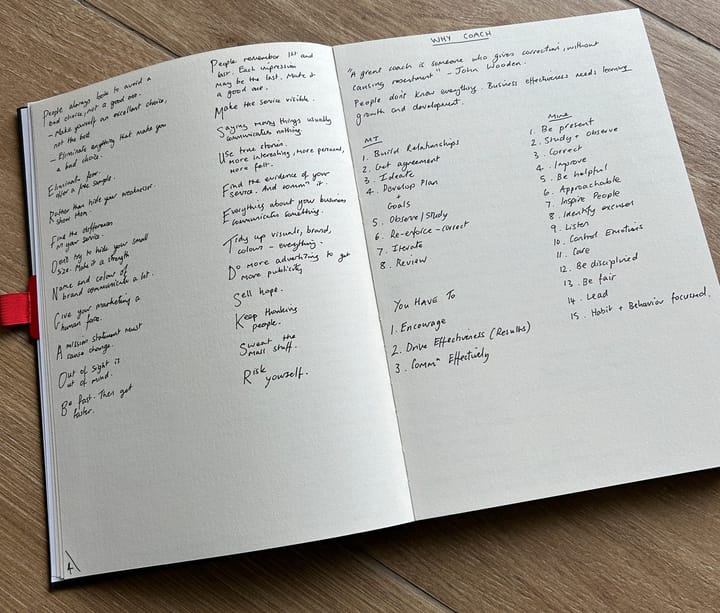 People always look to avoid a
bad choice, not a good one.
- Make yourself an excellent choice,
not the best
- Eliminate anything that make you
a bad choice.
Eliminate fear.
offer a free sample.
Rather than hide your weaknesses.
Show them.
Find the differences
in your service.
Don't try to hide your small
size. Make it a strength
Name and colour of
brand communicate a lot.
Give your marketing a
human face.
A mission statement must
cause change.
Out of sight is
out of mind.
Be fast. Then get
faster.
4
People remember 1st and
last. Each impression
may be the last. Make it
a good one.
Make the service visible.
Saying many things usually
communicates nothing.
Use true stories.
More interesting, more personal,
more felt.
Find the evidence of your
service. And commn it.
Everything about your business
communicates something.
Tidy up visuals, brand,
colours - everything.
Do more advertising to get
more publicity
Sell hope.
Keep thanking
people.
Sweat the
small stuff.
Risk yourself.
WHY COACH
"A great coach is someone who gives correction, without
causing resentment" - John Wooden.
People don't know everything. Business effectiveness needs learning
growth and development.
1. Build Relationships
2. Get agreement
3. Ideate
4. Develop Plan
+
Goals
5. Observe/Study
6. Re-enforce - correct
7. Iterate
8. Review
You HAVE TO
1. Encourage
2. Drive Effectiveness (Results)
3. Commn Effectively
Mine
1. Be present
2. Study + observe
3. Correct
4. Improve
5. Be helpful
6. Approachable
7. Inspire People
8. Identify excuses
9. Listen
10. Control Emotions
11. Care
12. Be disciplined
13. Be fair
14. Lead
15. Habit + Behavior focussed.